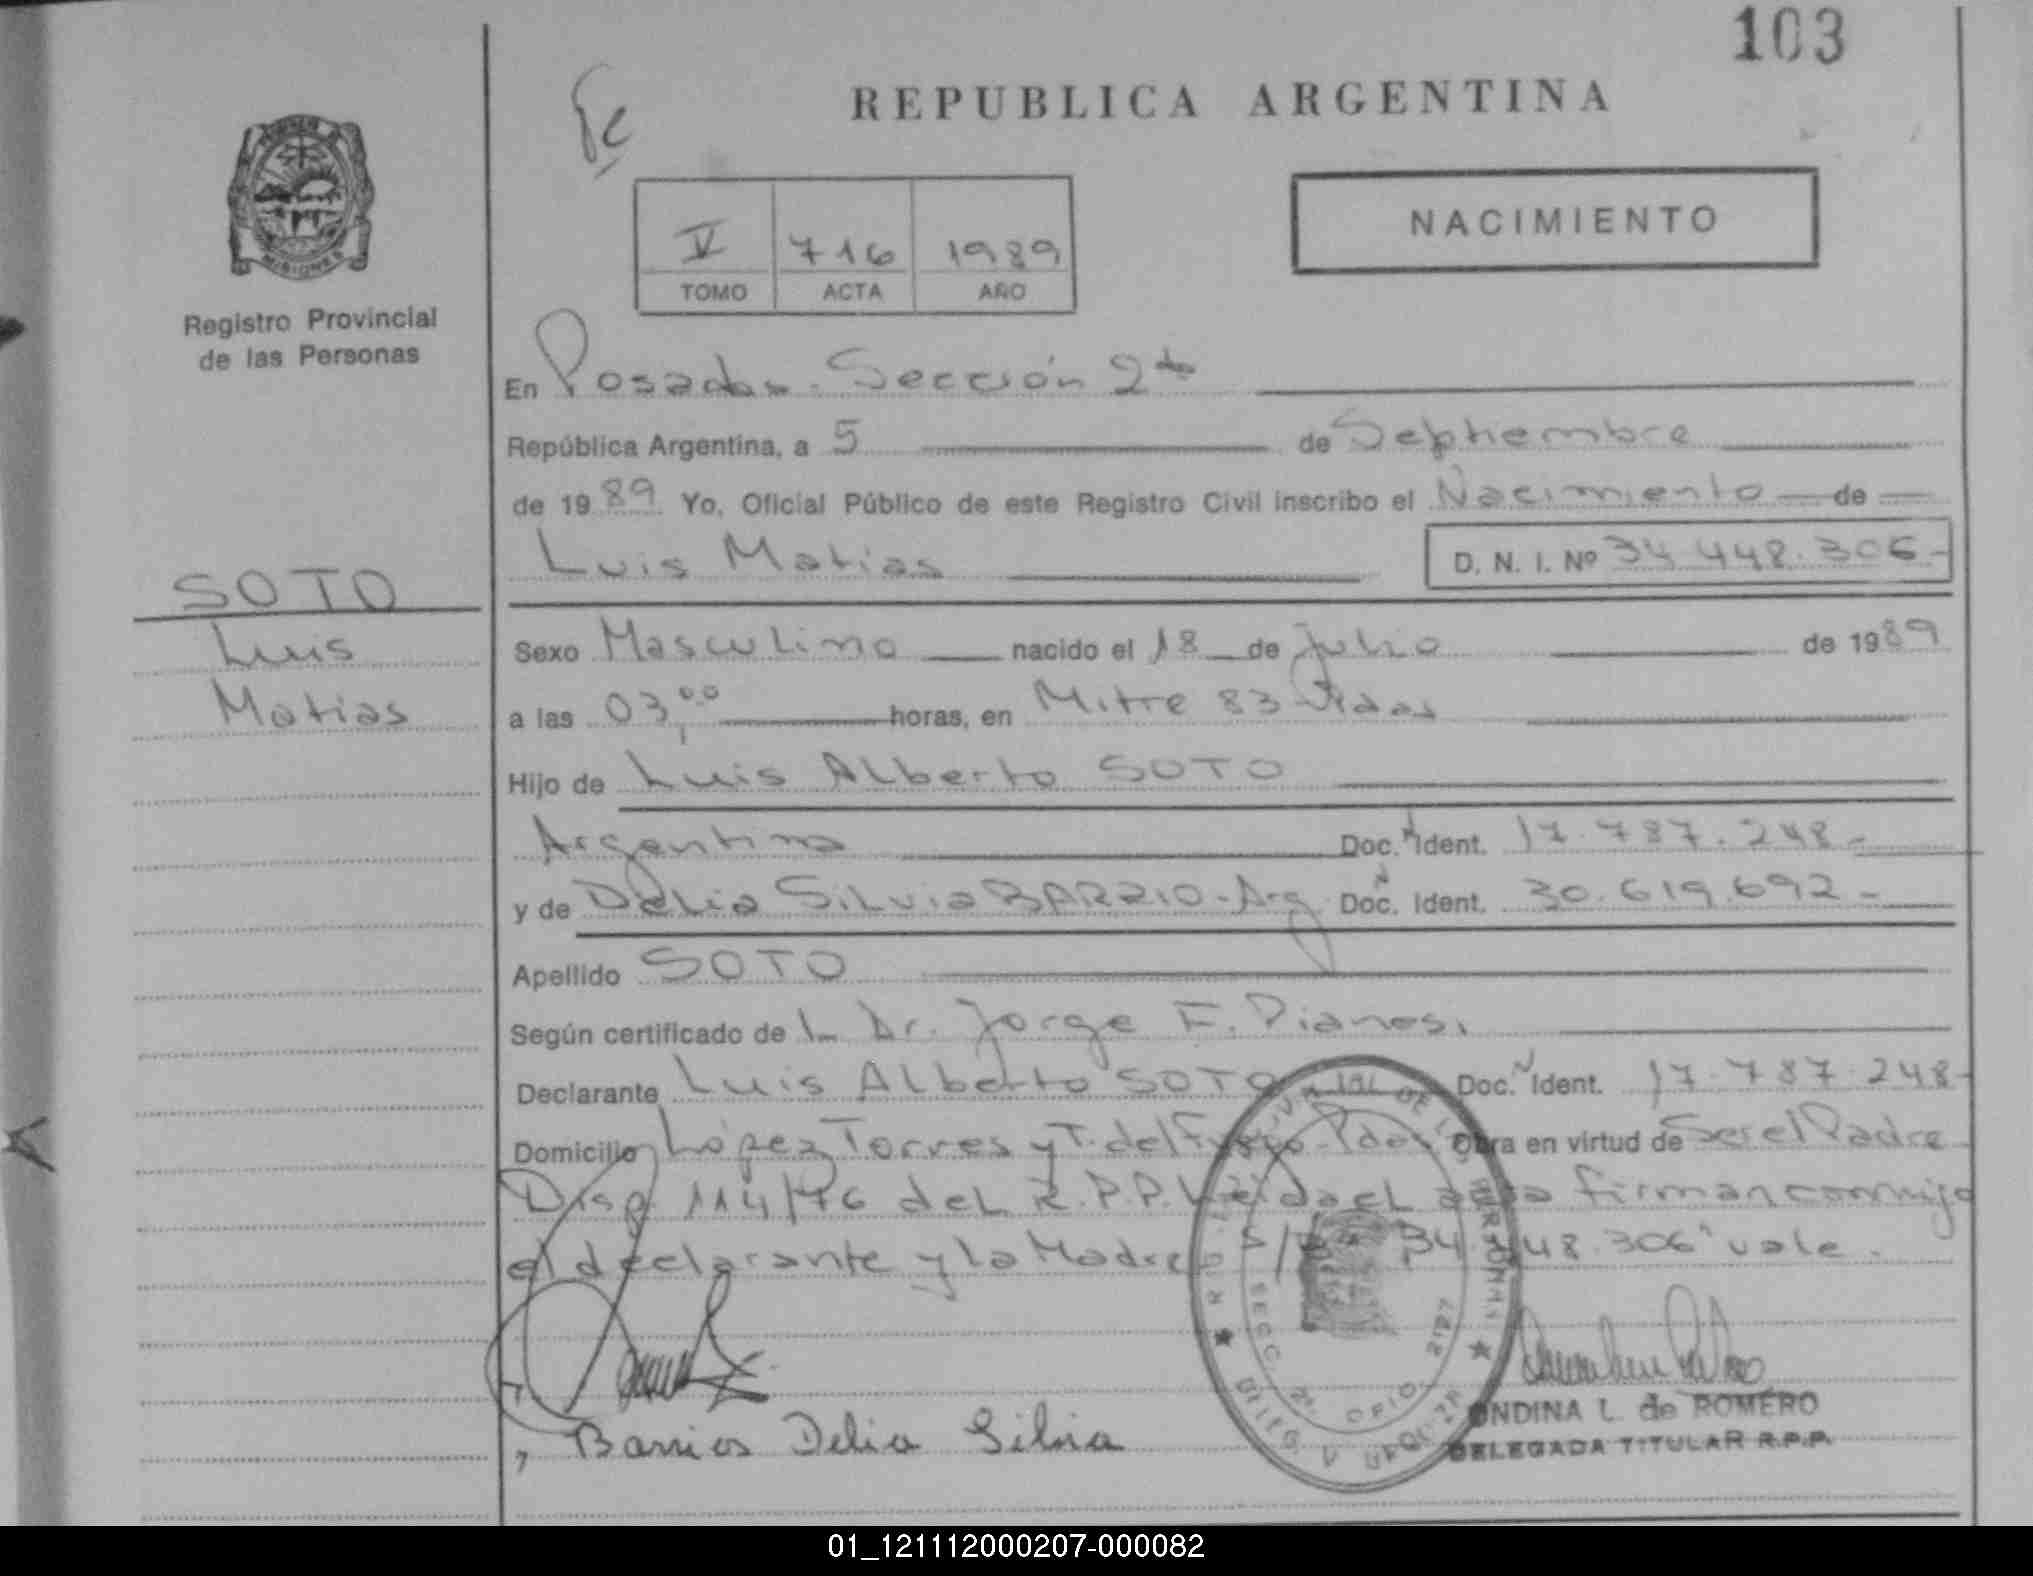 103
REPUBLICA ARGENTINA
NACIMIENTO
V 716 1989
TOMO ACTA AÑO
MISIONES
Registro Provincial
de las Personas
En Posadas - Sección 2da
República Argentina, a 5 de Septiembre
de 1989 Yo, Oficial Público de este Registro Civil inscribo el Nacimiento de
Luis Matias D. N. I. Nº 34.448.306-
SOTO
Luis
Matias
Sexo Masculino nacido el 18 de Julio de 1989
a las 03,00 horas, en Mitre 83 Pdas
Hijo de Luis Alberto SOTO
Argentino Doc. N Ident. 17.787.248-
y de Delia Silvia BARRIO - Arg Doc. N Ident. 30.619.692-
Apellido SOTO
Según certificado de L Dr. Jorge F. Dianos.
Declarante Luis Alberto SOTO Doc. N Ident. 17.787.248-
Domicilio López Torres y T. del Fuego - Pdas Obra en virtud de Ser el Padre
Disp. 114/76 del R.P.P. Leida el acta firman conmigo
el declarante y la Madre S/R 34.448.306" vale.
SECC. 2ª OFIC. 2187
Barrios Delia Silvia
ONDINA L. de ROMERO
DELEGADA TITULAR R.P.P.
01_121112000207-000082